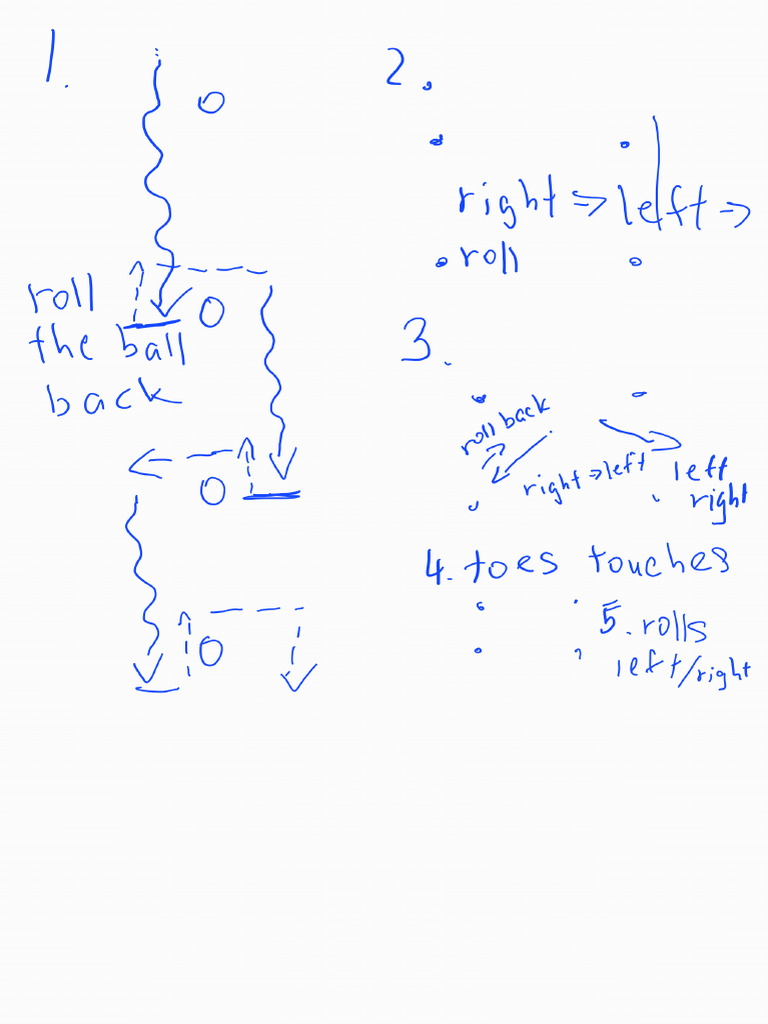 1.
roll
the ball
back
2.
right => left =>
roll
3.
roll back
right => left
left
right
4. toes touches
5. rolls
left/right